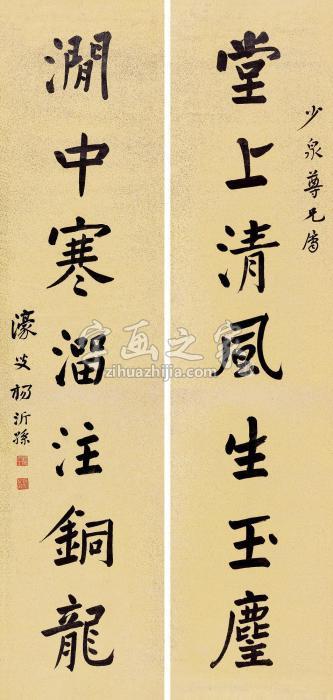 少泉尊兄属
堂上清風生玉麈
澗中寒溜注銅龍
濠叟楊沂孫
字画之家
zihuazhijia.com